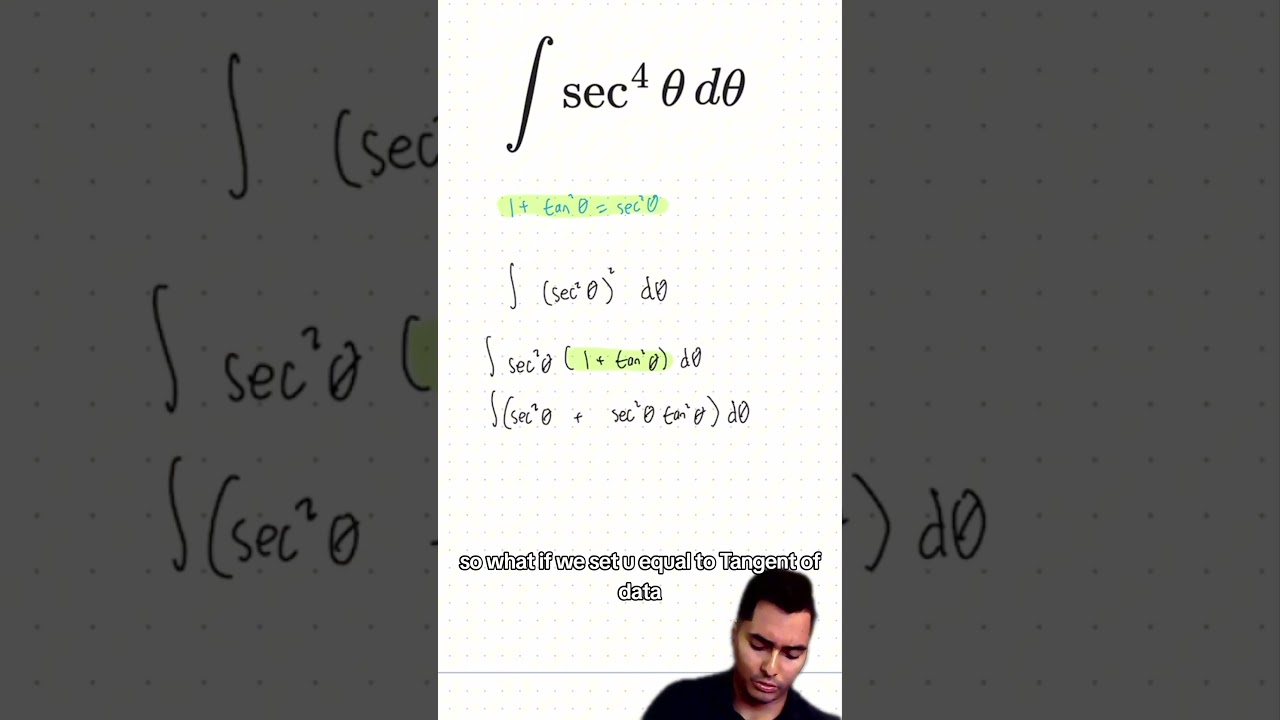 ∫ sec⁴ θ dθ
1 + tan²θ = sec²θ
∫ (sec²θ)² dθ
∫ sec²θ (1 + tan²θ) dθ
∫(sec²θ + sec²θ tan²θ) dθ
so what if we set u equal to Tangent of
data